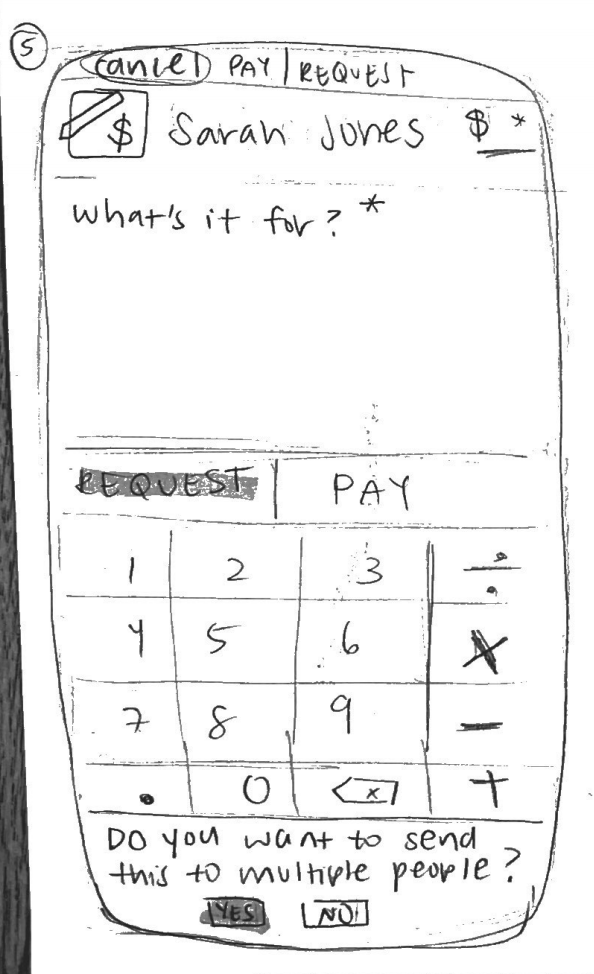 5
Cancel PAY | REQUEST
$ Sarah Jones $ *
What's it for? *
REQUEST | PAY
1 2 3 ÷
4 5 6 X
7 8 9 −
. 0 x +
DO you want to send
this to multiple people?
YES NO